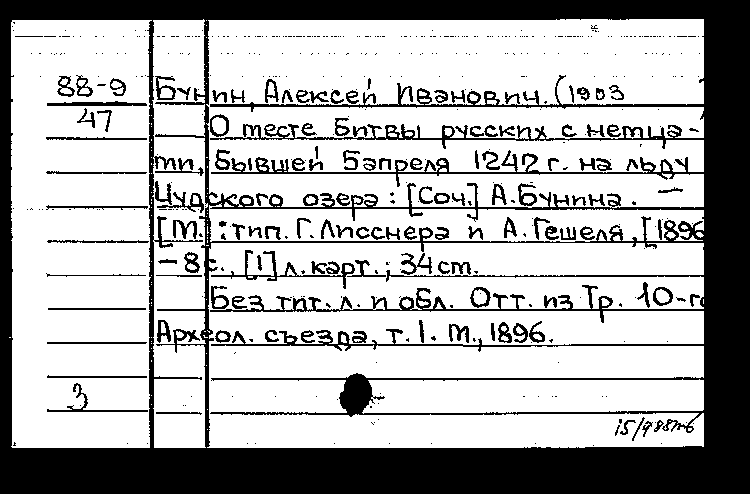 88-9 Бунин, Алексей Иванович. (1903
47 О месте битвы русских с немца-
ми, бывшей 5 апреля 1242 г. на льду
Чудского озера : [Соч.] А. Бунина. —
[М.] : тип. Г. Лисснера и А. Гешеля, [1896
— 8 с., [1] л. карт. ; 34 см.
Без тит. л. и обл. Отт. из Тр. 10-го
Археол. съезда, т. I. М., 1896.
3